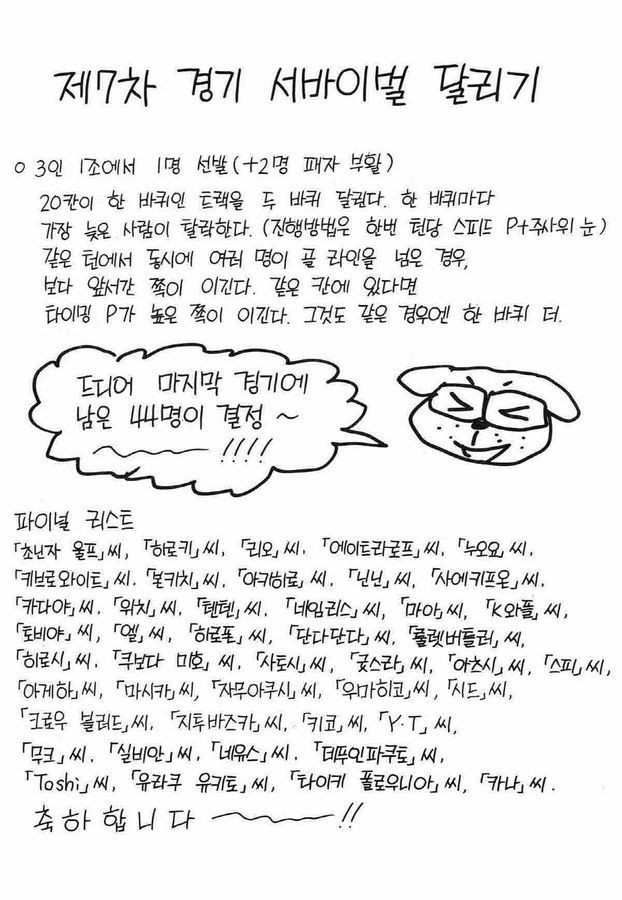 제7차 경기 서바이벌 달리기
○ 3인 1조에서 1명 선발 (+2명 패자 부활)
20칸이 한 바퀴인 트랙을 두 바퀴 달린다. 한 바퀴마다
가장 늦은 사람이 탈락한다. (진행방법은 한번 턴당 스피드 P+주사위 눈)
같은 턴에서 동시에 여러 명이 골 라인을 넘은 경우,
보다 앞서간 쪽이 이긴다. 같은 칸에 있다면
타이밍 P가 높은 쪽이 이긴다. 그것도 같은 경우엔 한 바퀴 더.
드디어 마지막 경기에
남은 44명이 결정~
!!!!
파이널 리스트
「초닌자 울프」씨, 「히로키」씨, 「리오」씨. 「에이트라로프」씨, 「누오요」씨,
「키브로와이트」씨. 「본키치」씨, 「아키히로」씨, 「닌닌」씨, 「사에키프온」씨,
「카다야」씨, 「위치」씨, 「텐텐」씨, 「네임리스」씨, 「마아」씨, 「K와플」씨,
「토비야」씨, 「엘」씨, 「히로포」씨, 「단다단다」씨, 「룰렛버틀러」씨,
「히로시」씨. 「쿠보다 미호」씨, 「사토시」씨, 「굿스라」씨, 「아츠시」씨, 「스피」씨,
「아게하」씨, 「마시카」씨, 「자무아쿠시」씨, 「우마히코」씨, 「시드」씨,
「크로우 블러드」씨, 「지투바즈카」씨, 「키코」씨, 「Y·T」씨,
「무크」씨. 「실비안」씨, 「네유스」씨. 「데뚜인파쿠토」씨,
「Toshi」씨, 「유라쿠 유키토」씨, 「타이키 플로우니아」씨, 「카나」씨.
축하합니다 !!